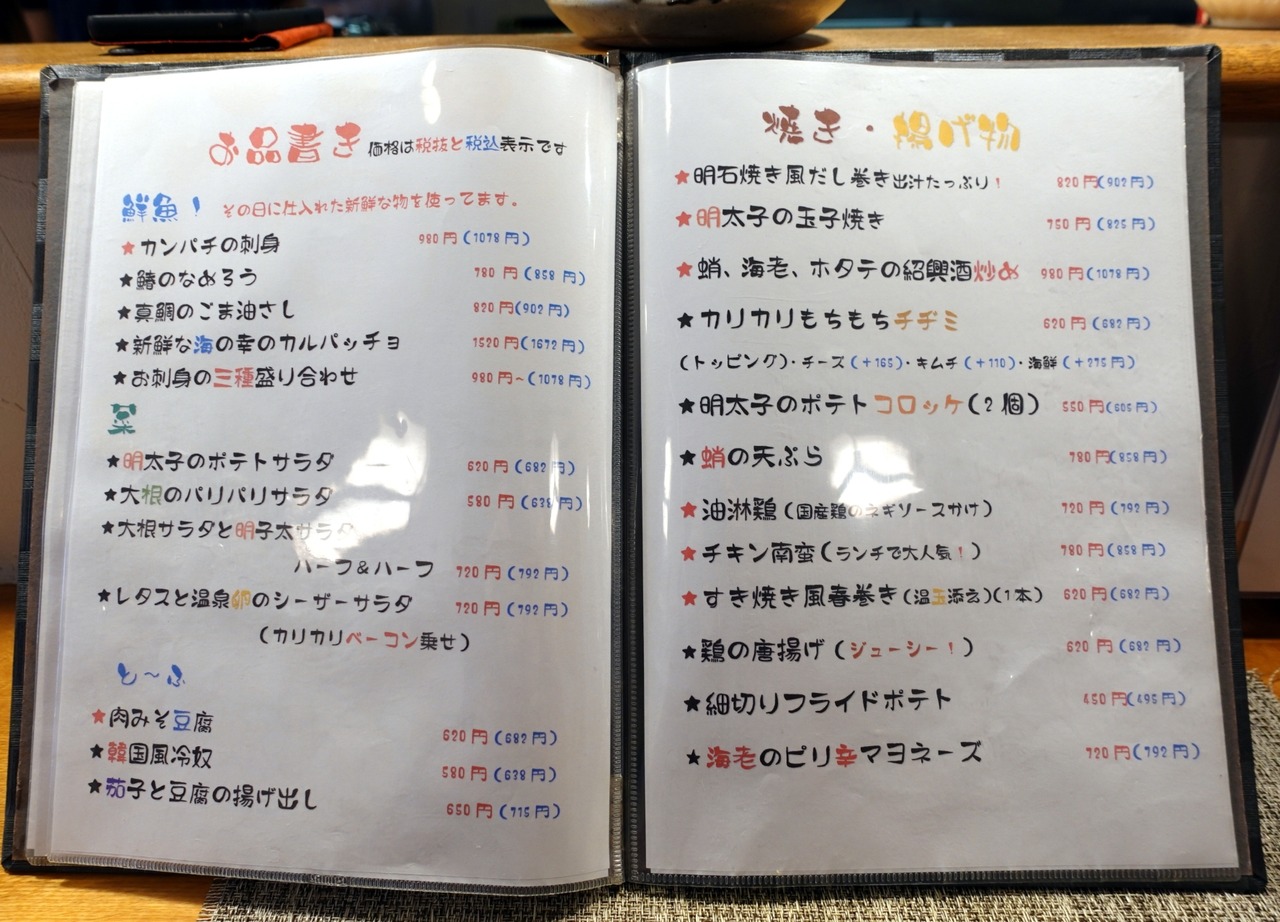 お品書き 価格は税抜と税込表示です
鮮魚! その日に仕入れた新鮮な物を使ってます。
★カンパチの刺身 980円(1078円)
★鰆のなめろう 780円(858円)
★真鯛のごま油さし 820円(902円)
★新鮮な海の幸のカルパッチョ 1520円(1672円)
★お刺身の三種盛り合わせ 980円~(1078円)
菜
★明太子のポテトサラダ 620円(682円)
★大根のパリパリサラダ 580円(638円)
★大根サラダと明子太サラダ
ハーフ&ハーフ 720円(792円)
★レタスと温泉卵のシーザーサラダ 720円(792円)
(カリカリベーコン乗せ)
と~ふ
★肉みそ豆腐 620円(682円)
★韓国風冷奴 580円(638円)
★茄子と豆腐の揚げ出し 650円(715円)
焼き・揚げ物
★明石焼き風だし巻き出汁たっぷり! 820円(902円)
★明太子の玉子焼き 750円(825円)
★蛸、海老、ホタテの紹興酒炒め 980円(1078円)
★カリカリもちもちチヂミ 620円(682円)
(トッピング)・チーズ(+165)・キムチ(+110)・海鮮(+275円)
★明太子のポテトコロッケ(2個) 550円(605円)
★蛸の天ぷら 780円(858円)
★油淋鶏(国産鶏のネギソースがけ) 720円(792円)
★チキン南蛮(ランチで大人気!) 780円(858円)
★すき焼き風春巻き(温玉添え)(1本) 620円(682円)
★鶏の唐揚げ(ジューシー!) 620円(682円)
★細切りフライドポテト 450円(495円)
★海老のピリ辛マヨネーズ 720円(792円)